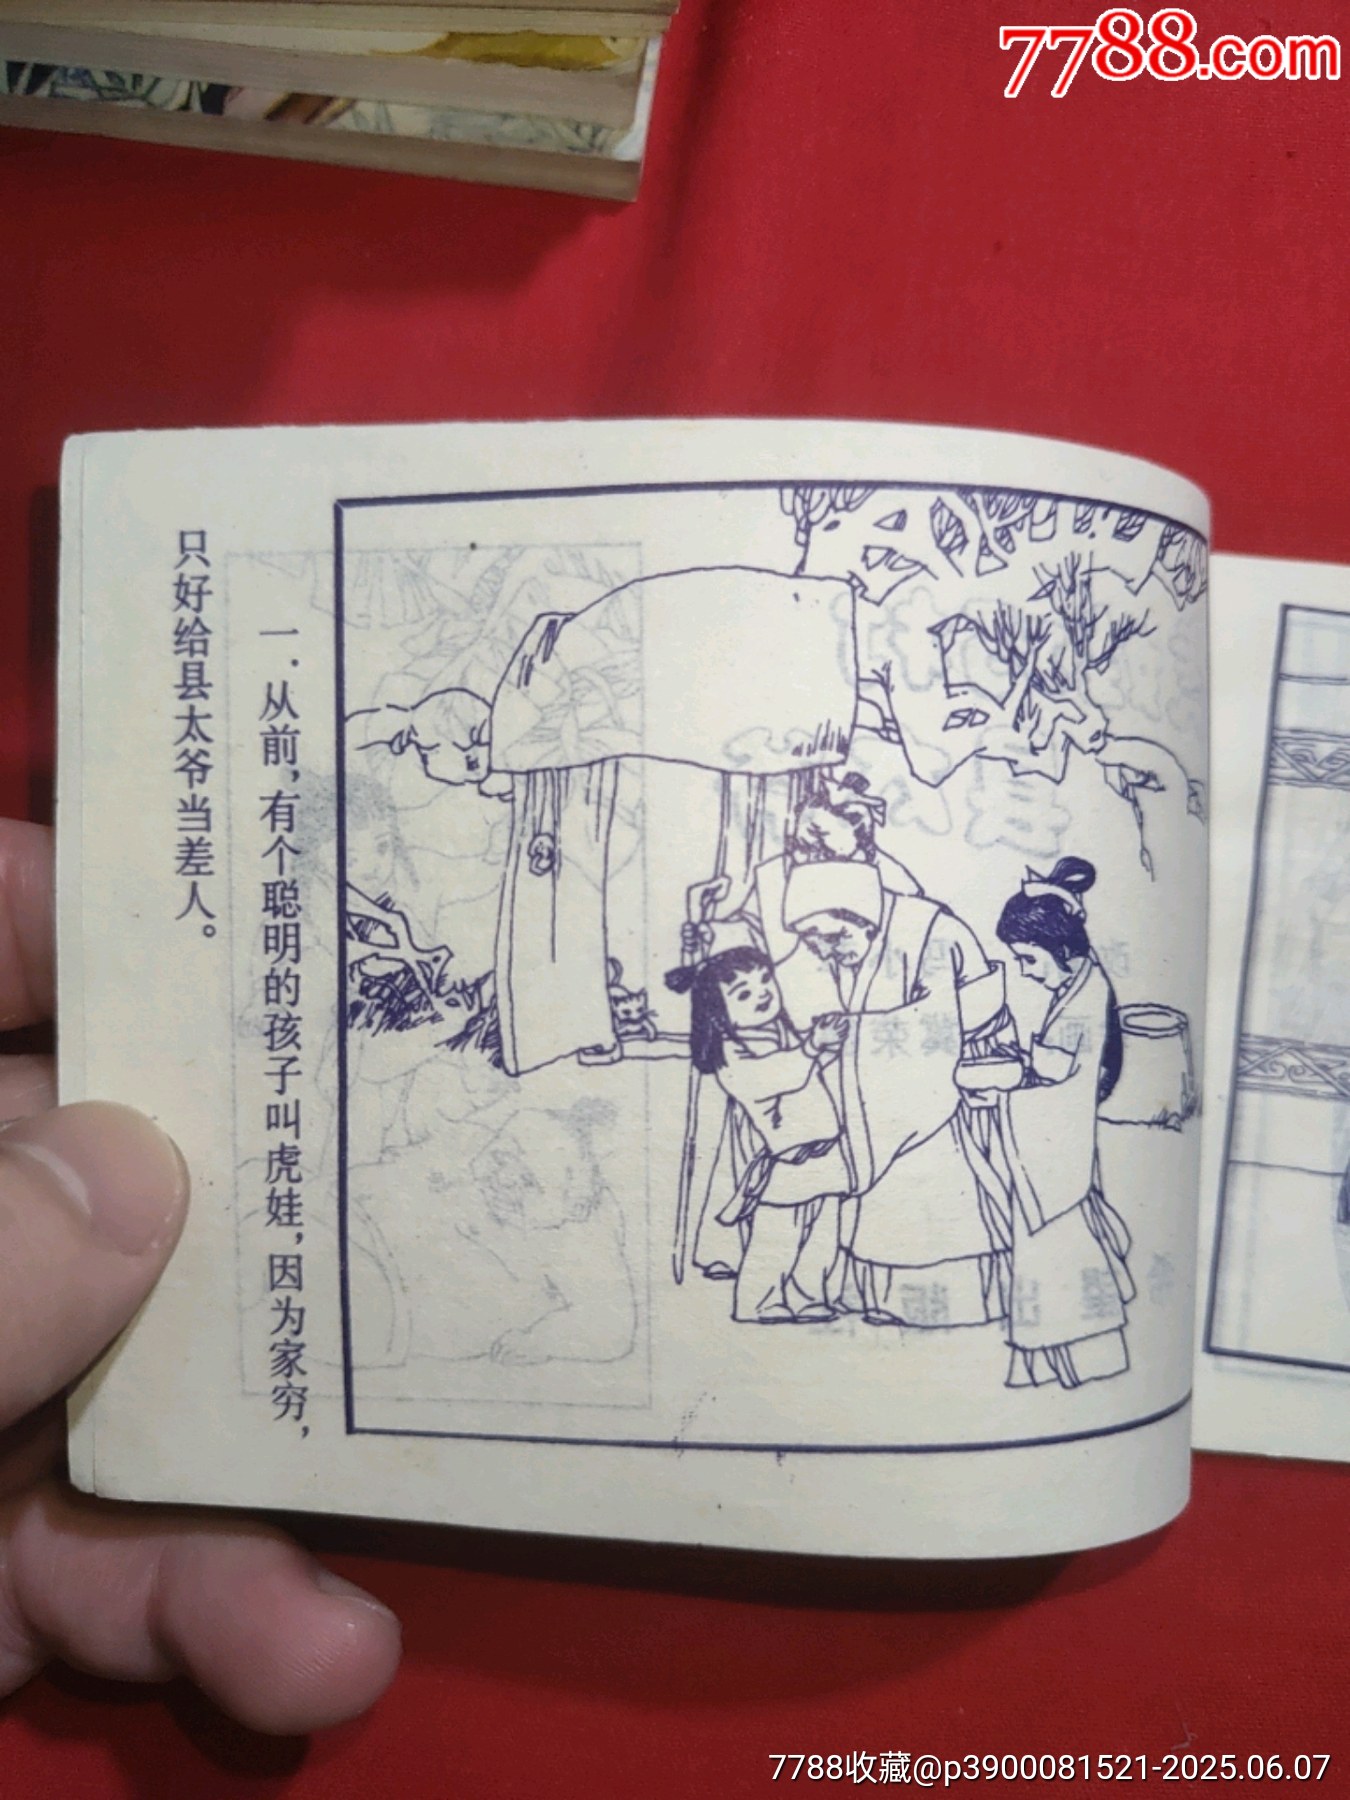 7788.com
一.从前,有个聪明的孩子叫虎娃,因为家穷,
只好给县太爷当差人。
7788收藏@p3900081521-2025.06.07